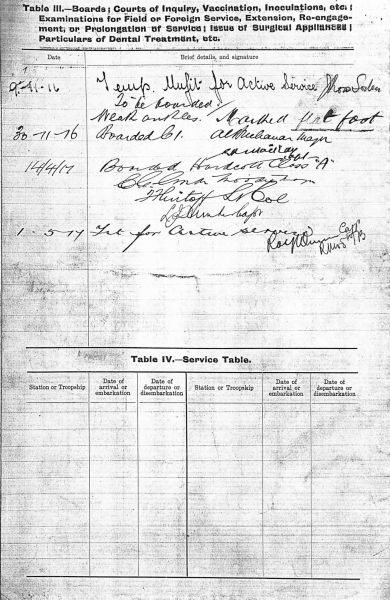 Table III.—Boards; Courts of Inquiry, Vaccination, Inoculations, etc.;
Examinations for Field or Foreign Service, Extension, Re-engage-
ment, or Prolongation of Service; Issue of Surgical Appliances;
Particulars of Dental Treatment, etc.
Date Brief details, and signature
9-11-16 Temp. Unfit for Active Service
To be boarded.
Weak ankles. Marked flat foot
30-11-16 Boarded C1. Major
14/4/17 Boarded Hurdcott Class "A"
Lt Col
Capt
1-5-17 Fit for Active service Capt
Table IV.—Service Table.
Station or Troopship Date of arrival or embarkation Date of departure or disembarkation Station or Troopship Date of arrival or embarkation Date of departure or disembarkation